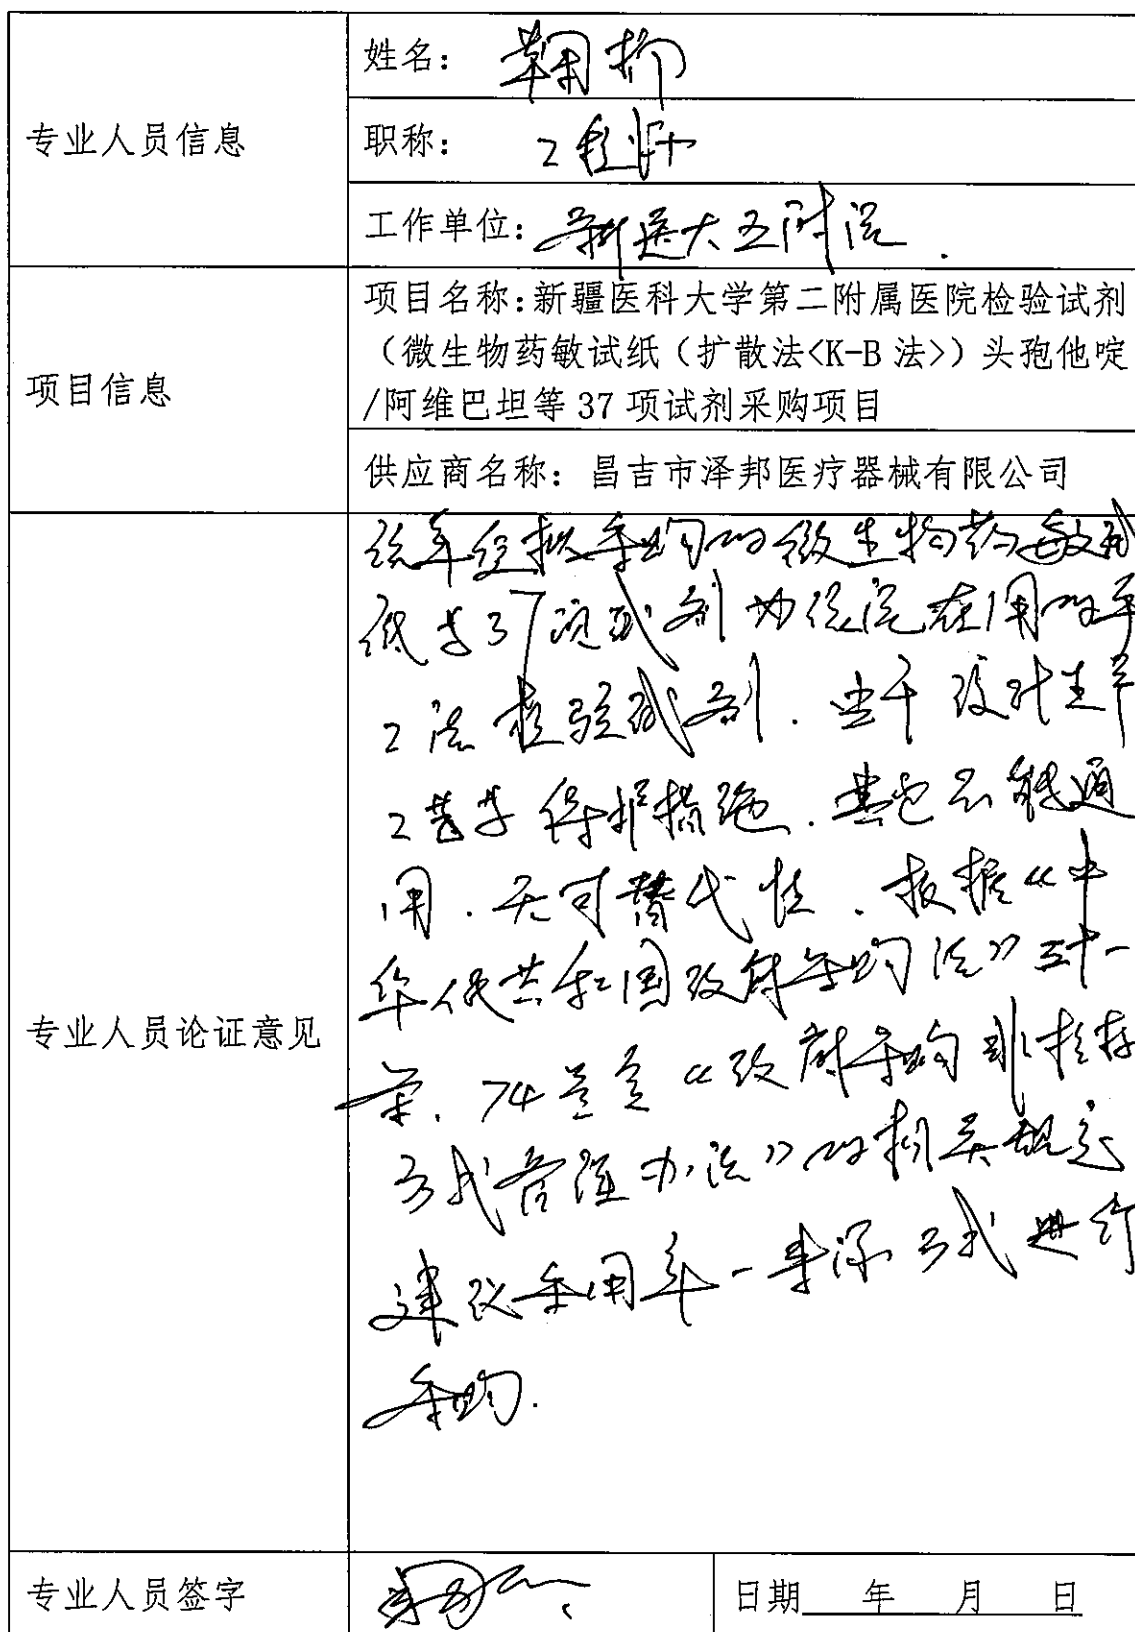 专业人员信息
姓名:
职称: 工程师
工作单位: 新医大五附院.
项目信息
项目名称:新疆医科大学第二附属医院检验试剂
(微生物药敏试纸(扩散法<K-B 法>)头孢他啶
/阿维巴坦等 37 项试剂采购项目
供应商名称: 昌吉市泽邦医疗器械有限公司
专业人员论证意见
该单位拟采购的微生物药敏试
纸等37项试剂为该院在用的手
工法检验试剂.鉴于设计生产
工艺等保护措施.其它不能通
用.无可替代性.根据《中
华人民共和国政府采购法》三十一
条.74号令《政府采购非招标
方式管理办法》的相关规定
建议采用单一来源方式进行
采购.
专业人员签字
日期 年 月 日